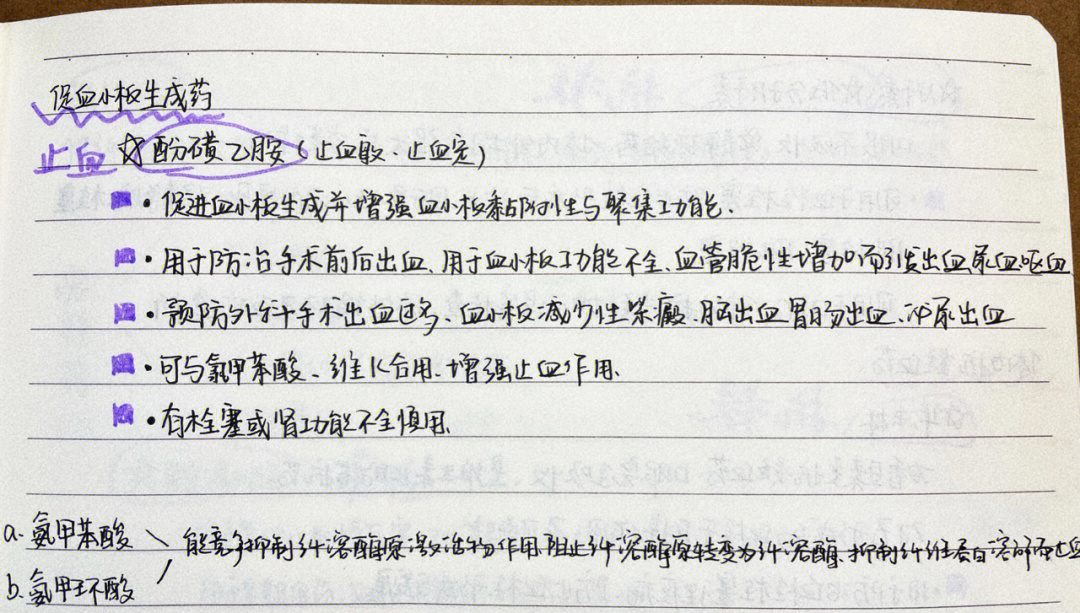 促血小板生成药
止血 ☆酚磺乙胺(止血敏、止血定)
· 促进血小板生成并增强血小板黏附性与聚集功能.
· 用于防治手术前后出血、用于血小板功能不全、血管脆性增加而引发出血尿血呕血
· 预防外科手术出血、血小板减少性紫癜、脑出血胃肠出血、泌尿出血
· 可与氨甲苯酸、维K合用.增强止血作用.
· 有栓塞或肾功能不全慎用.
a. 氨甲苯酸 能竞争抑制纤溶酶原激活物作用.阻止纤溶酶原转变为纤溶酶.抑制纤维蛋白溶解而止血
b. 氨甲环酸